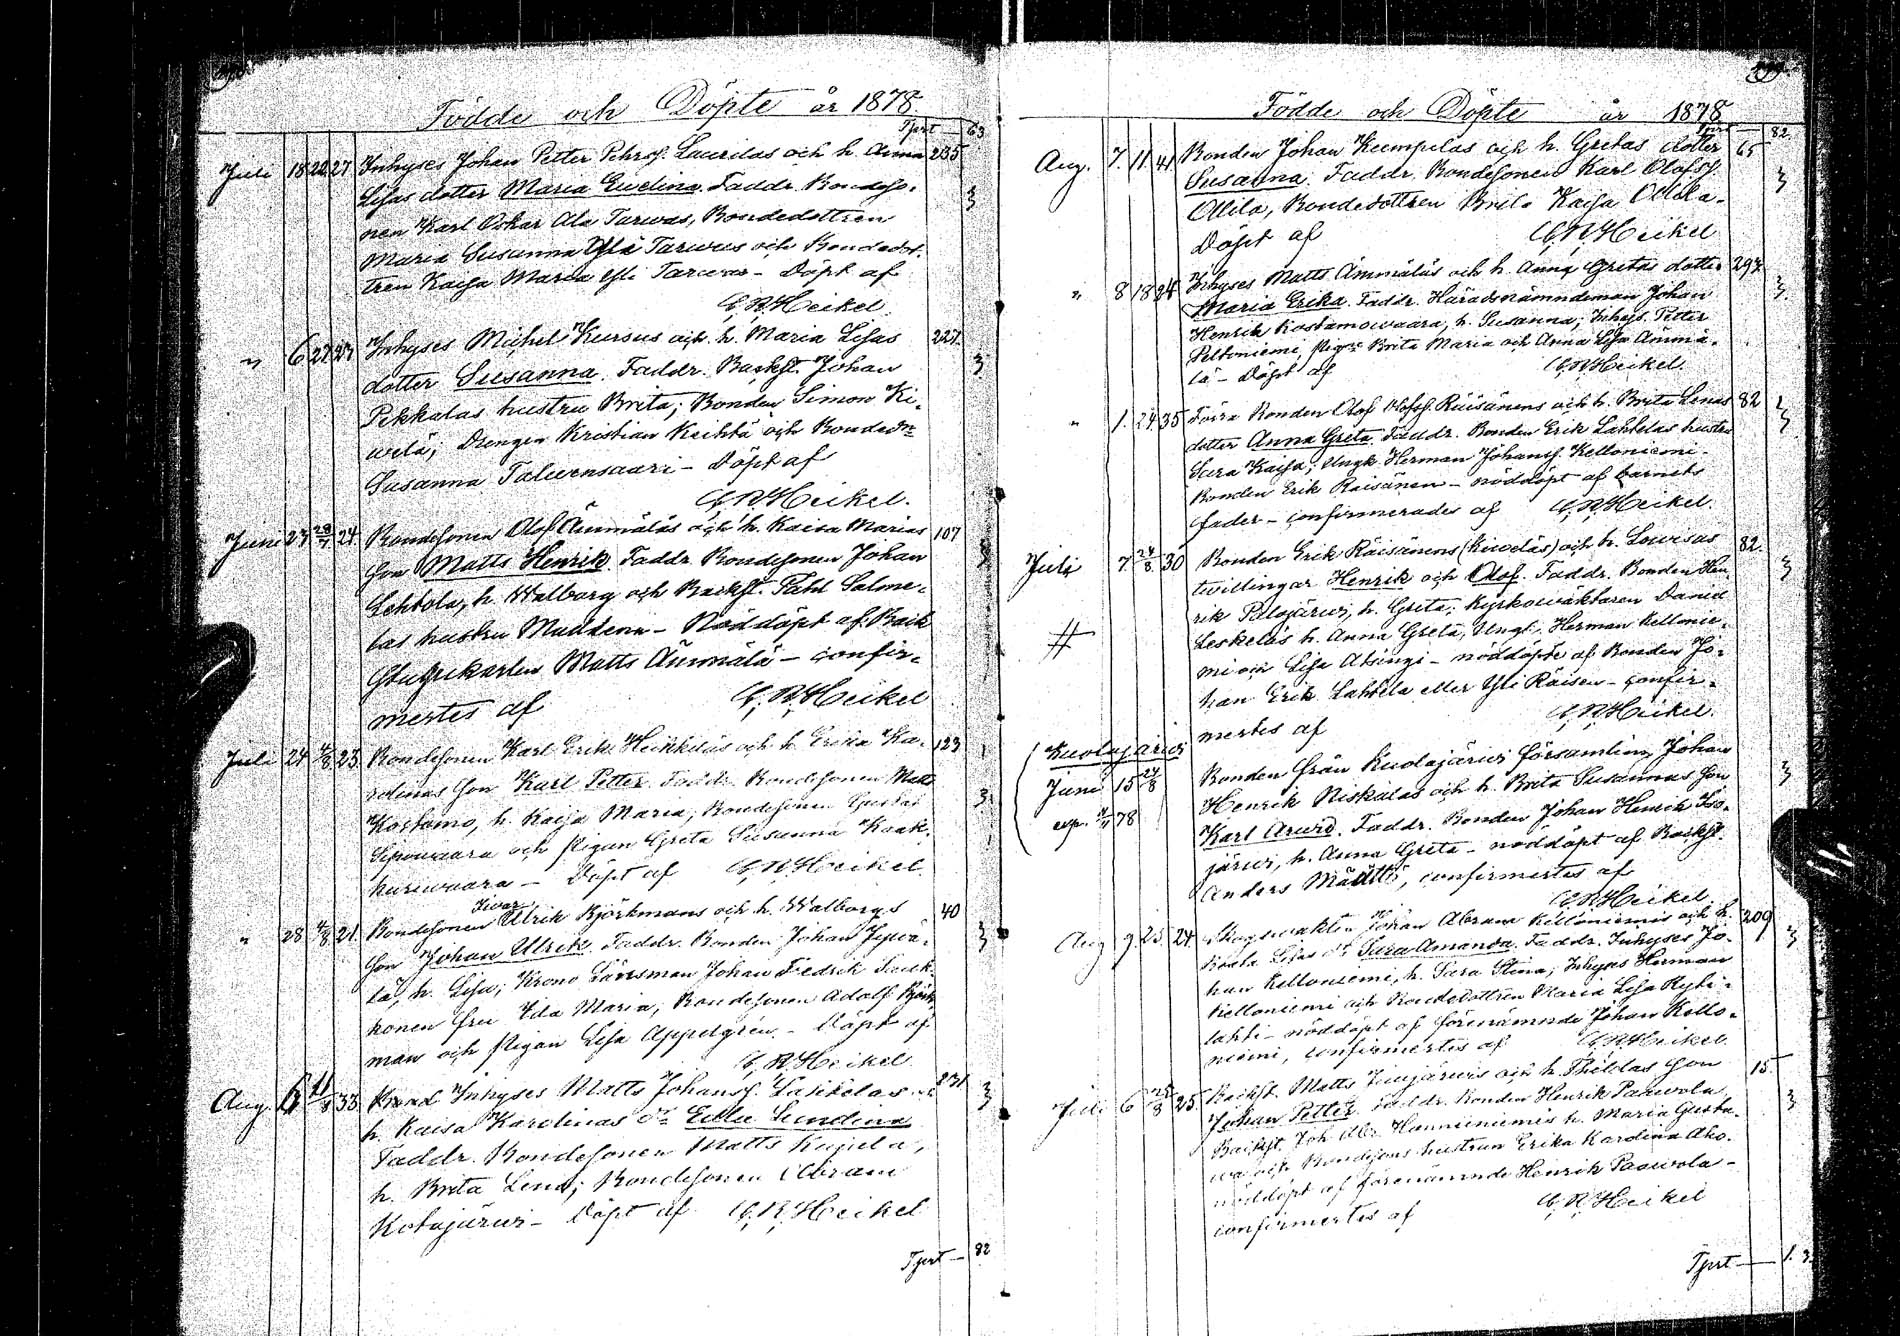 Födde och Döpte år 1878.
Tprt — 63
Juli 18 22 27 Inhyses Johan Petter Pehrss. Laurilas och h. Anna 235
Lisas dotter Maria Ewelina. Faddr. Bondeso-
nen Karl Oskar Ala Tarwas, Bondedottren
Maria Susanna Yla Tarwas och Bondedot-
tren Kaisa Maria Yli Tarwas — Döpt af
C. R. Heikel.
" 6 27 27 Inhyses Michel Kursus och h. Maria Lisas 227.
dotter Susanna. Faddr. Backst. Johan
Pekkalas hustru Brita; Bonden Simon Ki-
welä; Drengen Kristian Keihtä och Bondedr
Susanna Talwensaari — Döpt af
C. R. Heikel.
Juni 27 28/7 24. Bondesonen Olof Ämmäläs och h. Kaisa Marias 107
son Matts Henrik. Faddr. Bondesonen Johan
Lehtola, h. Walborg och Backst. Salme-
las hustru Maddena — Nöddöpt af Back
stugukarlen Matts Ämmälä — confir-
mertes af C. R. Heikel
Juli 24 4/8 23. Bondesonen Karl Erik Heikkiläs och h. Erika Ka- 123
rolinas son Karl Petter. Faddr. Bondesonen Matts
Kostamo, h. Kaisa Maria; Bondesonen Gustaf
Sipowaara och pigan Greta Susanna Kaak-
kuriwaara — Döpt af C. R. Heikel
Iwar
" 28 4/8 21. Bondesonen Ulrik Björkmans och h. Walborgs 40
son Johan Ulrik. Faddr. Bonden Johan
lä, h. Lisa; Krono Länsman Johan Fredrik Sauk-
konen fru Ida Maria; Bondesonen Adolf Björk-
man och pigan Lisa Appelgrén. — Döpt af
C. R. Heikel
Aug. 6 11/8 33. Inhyses Matts Johanss. Lahtelas och 231
h. Kaisa Karolinas dr Edla Sundina
Faddr. Bondesonen Matts Kujala,
h. Brita Lena; Bondesonen Abram
Kotajärwi — Döpt af C. R. Heikel
Tprt — 82
Födde och Döpte år 1878
Tprt — 82.
Aug. 7. 11. 41. Bonden Johan Kumpulas och h. Gretas dotter 65
Susanna. Faddr. Bondesonen Karl Olofss.
Ollila, Bondedottren Brita Kaisa Ollila —
Döpt af C. R. Heikel
" 8 18 28 Inhyses Matts Ämmäläs och h. Anna Gretas dotter 297.
Maria Erika. Faddr. Häradsnämndeman Johan
Henrik Kostamowaara, h. Susanna; Inhys. Petter
Peltoniemi, pigor Brita Maria och Anna Lisa Ämmä-
lä — Döpt af C. R. Heikel.
" 1. 24 35 Förra Bonden Olof Olofss. Räisänens och h. Brita Lenas 82
dotter Anna Greta. Faddr. Bonden Erik Lahtelas hustru
Sara Kaisa; Yngl. Herman Johanss. Kelloniemi.
Bonden Erik Räisänen — nöddöpt af barnets
fader — confirmerades af C. R. Heikel.
Juli 7. 24/8 30 Bonden Erik Räisänens (Kiweläs) och h. Lowisas 82.
twillingar Henrik och Olof. Faddr. Bonden Hen-
rik Palojärwi, h. Greta; Kyrkowäktaren Daniel
Leskeläs h. Anna Greta, Yngl. Herman Kellonie-
mi och Lisa Alaingi — nöddöpte af Bonden Jo-
han Erik Lahtela eller Yli Räisen — confir-
mertes af C. R. Heikel.
(Kuolajärwi
Juni 15 24/8 Bonden från Kuolajärwi församling Johan
Henrik Niskalas och h. Brita Susannas son
exp. 78 Karl Arwid. Faddr. Bonden Johan Henrik Iso-
järwi, h. Anna Greta — nöddöpt af Backst.
Anders Määttä, confirmertes af
C. R. Heikel.
Aug 9. 25. 24 Skogswakten Johan Abram Kelloniemis och h. 209
Lisas dr Sara Amanda. Faddr. Inhyses Jo-
han Kelloniemi, h. Sara Stina; Inhyses Herman
Kelloniemi och Bondedottren Maria Lisa Kyli-
lahti — nöddöpt af förenämnde Johan Kello-
niemi, confirmertes af C. R. Heikel.
Juli 6 25/8 25. Backst. Matts Jumjärwis och h. Thildas son 15.
Johan Petter. Faddr. Bonden Henrik Paawola,
Backst. Joh. Abr. Hanniniemis h. Maria Gusta-
wa och Bondesons hustrun Erika Karolina Aho.
nöddöpt af förenämnde Henrik Paawola —
confirmertes af C. R. Heikel
Tprt — 1. 3.